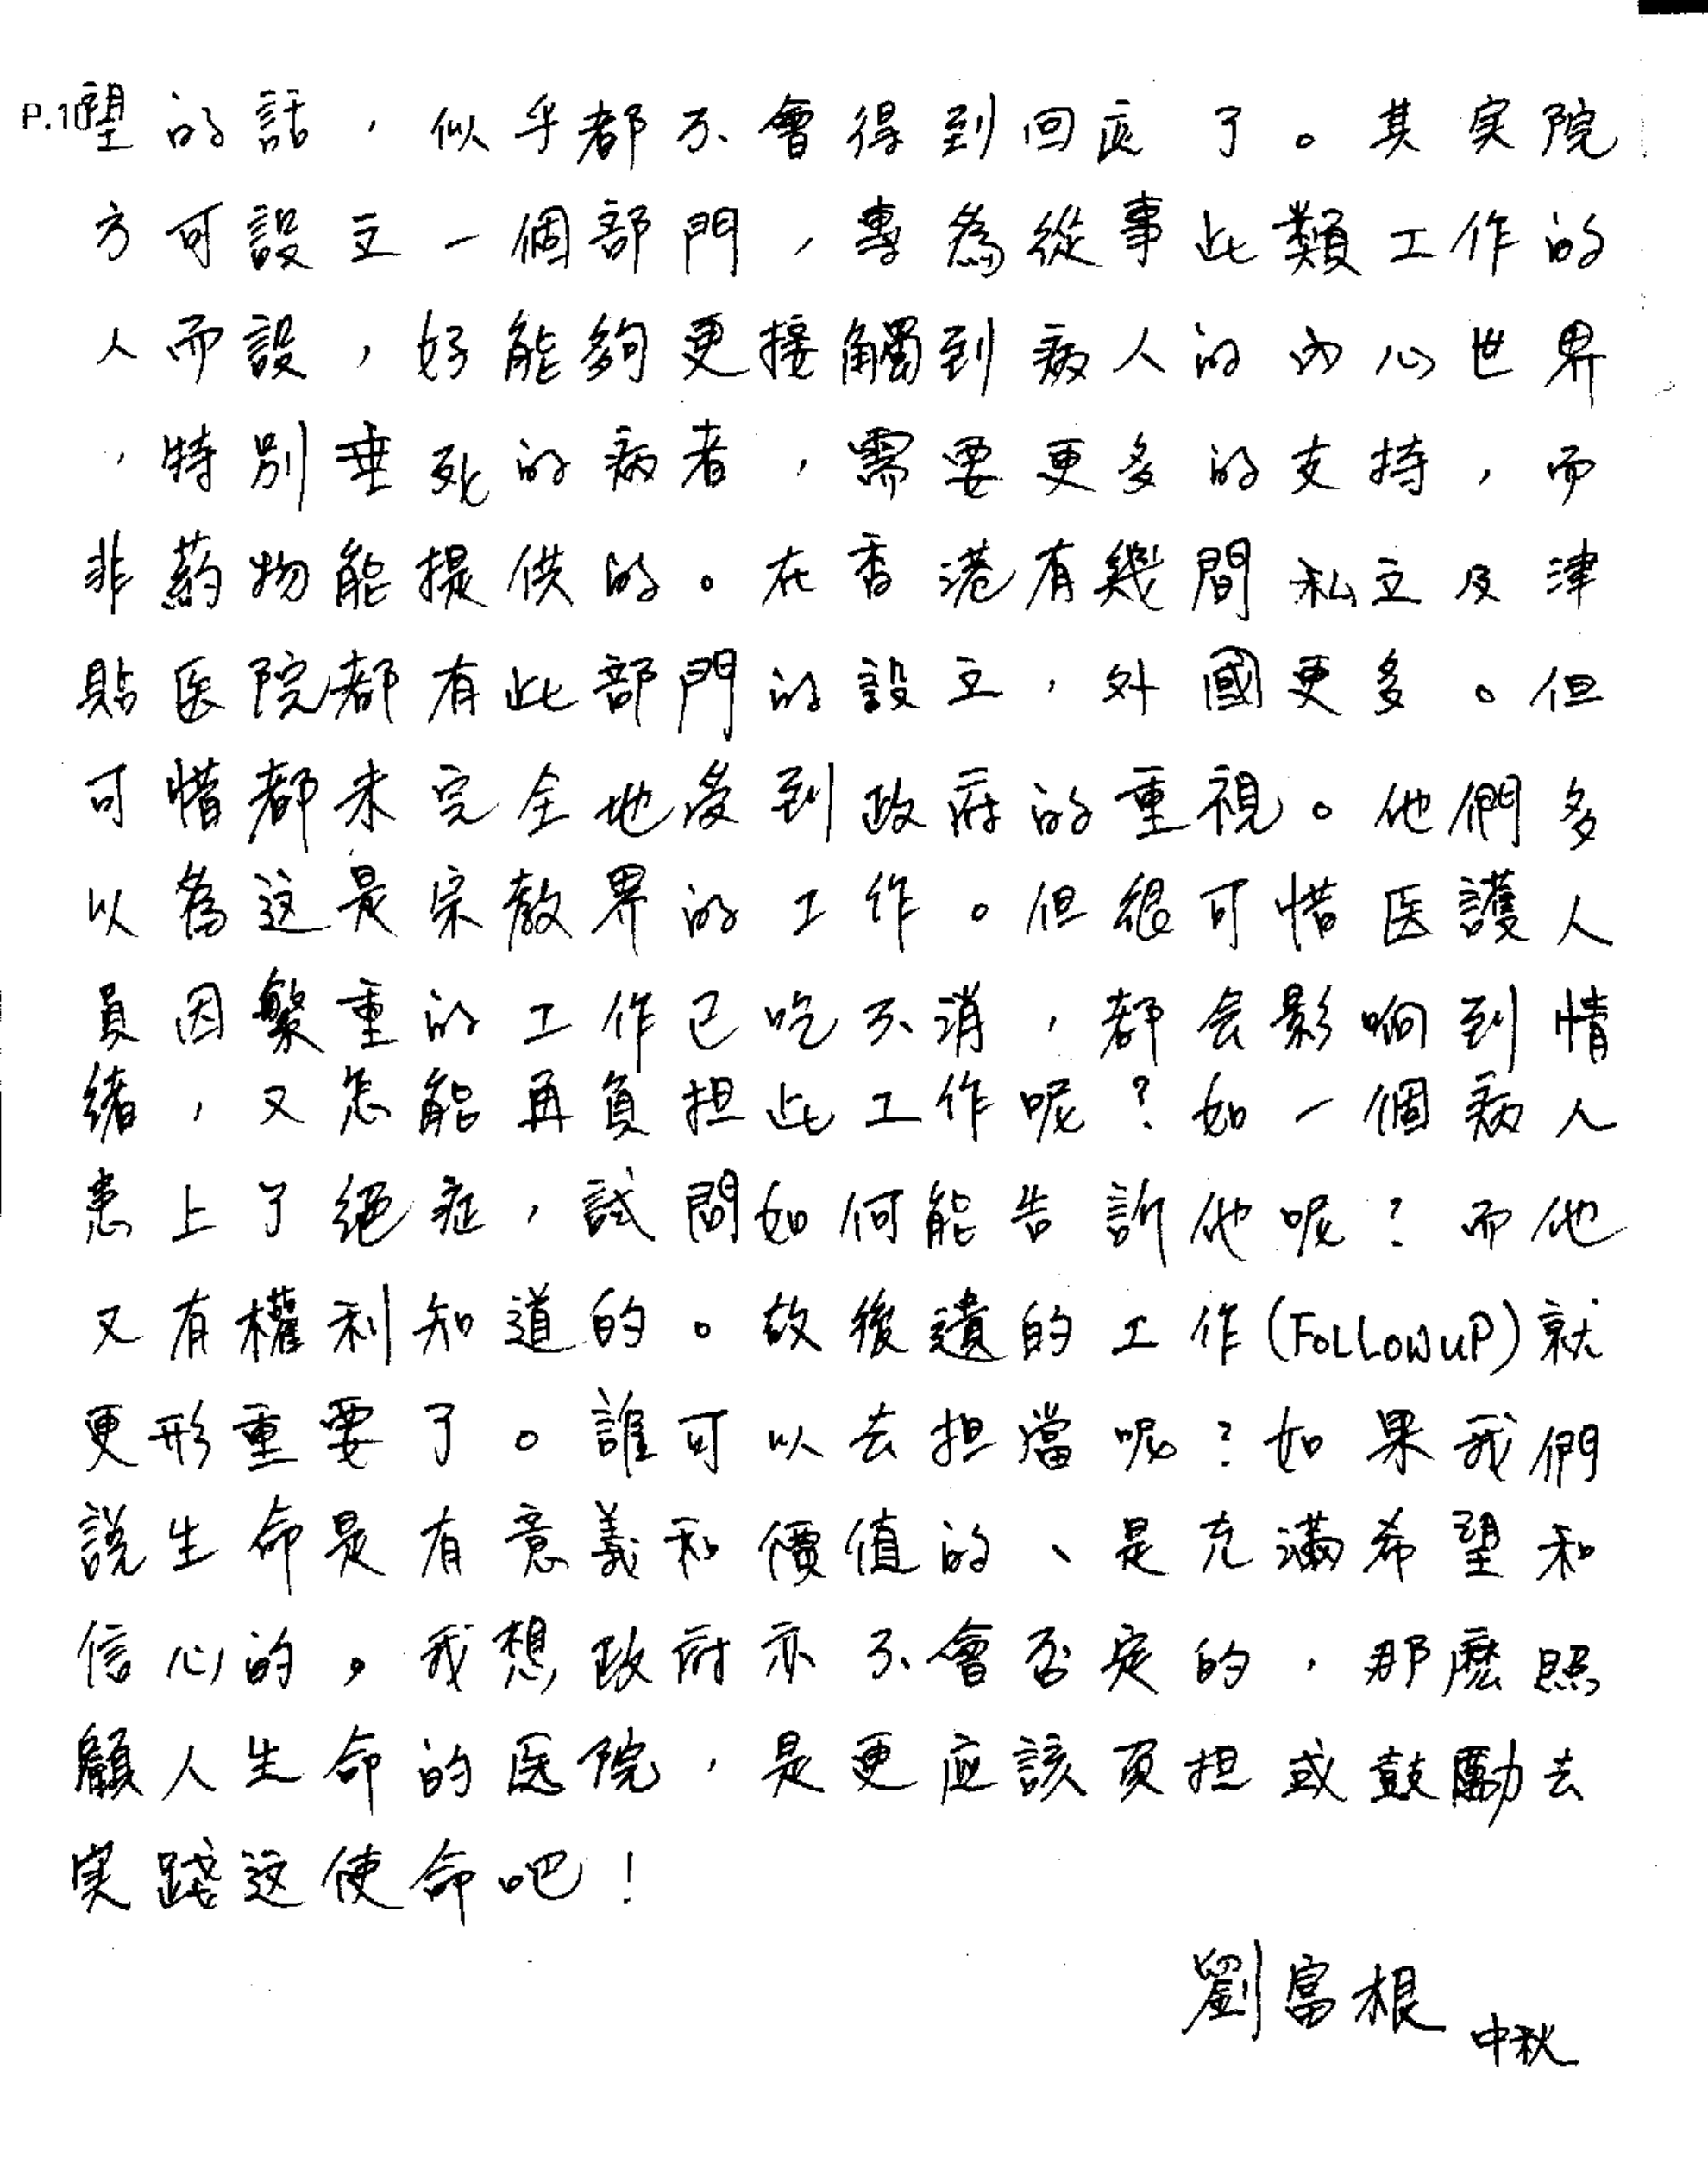 P.10望的話，似乎都不會得到回应了。其実院
方可設立一個部門，專為從事此類工作的
人而設，好能夠更接觸到病人的內心世界
，特別垂死的病者，需要更多的支持，而
非葯物能提供的。在香港有幾間私立及津
貼医院都有此部門的設立，外國更多。但
可惜都未完全地受到政府的重視。他們多
以為这是宗教界的工作。但很可惜医護人
員因繁重的工作已吃不消，都会影响到情
緒，又怎能再負担此工作呢？如一個病人
患上了絕症，試問如何能告訴他呢？而他
又有權利知道的。故後遺的工作(FOLLOWUP)就
更形重要了。誰可以去担當呢？如果我們
説生命是有意義和價值的、是充滿希望和
信心的。我想政府亦不會否定的，那麽照
顧人生命的医院，是更应該負担或鼓勵去
実踐这使命吧！
劉富根 中秋